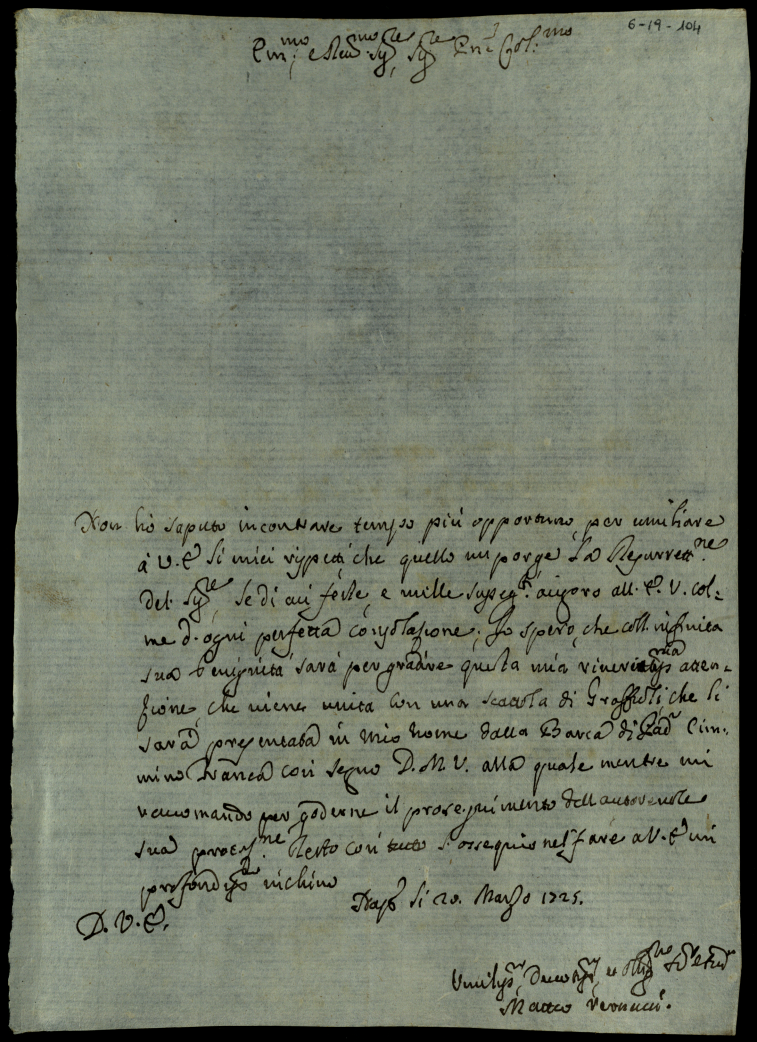 6-19-104
Em:mo, e Rev:mo Sig:re, Sig:re P:ne Col:mo
Non hò saputo incontrare tempo più opportuno, per umiliare
à V. E. li miei rispetti, che quello mi porge la Resurrett:ne
del Sig:re, le di cui feste, e mille susseg:ti auguro all' E. V. col=
me d'ogni perfetta consolazione; Io spero, che coll'infinita
sua benignità sarà per gradire questa mia riverentiss:ma atten=
zione, che viene unita con una scatola di che li
sarà presentata in mio nome dalla Barca di Pad:n Cim=
mino franca con segno D. M. V. alla quale mentre mi
raccomando per goderne il proseguimento dell'autorevole
sua protez:ne Resto con tutto l'ossequio nel fare a V. E. un
profondiss:o inchino
Nap: li 20. Marzo 1725.
D. V. E.
Umiliss:o, Devotiss:o, et Obblig:mo Ser:e
Matteo